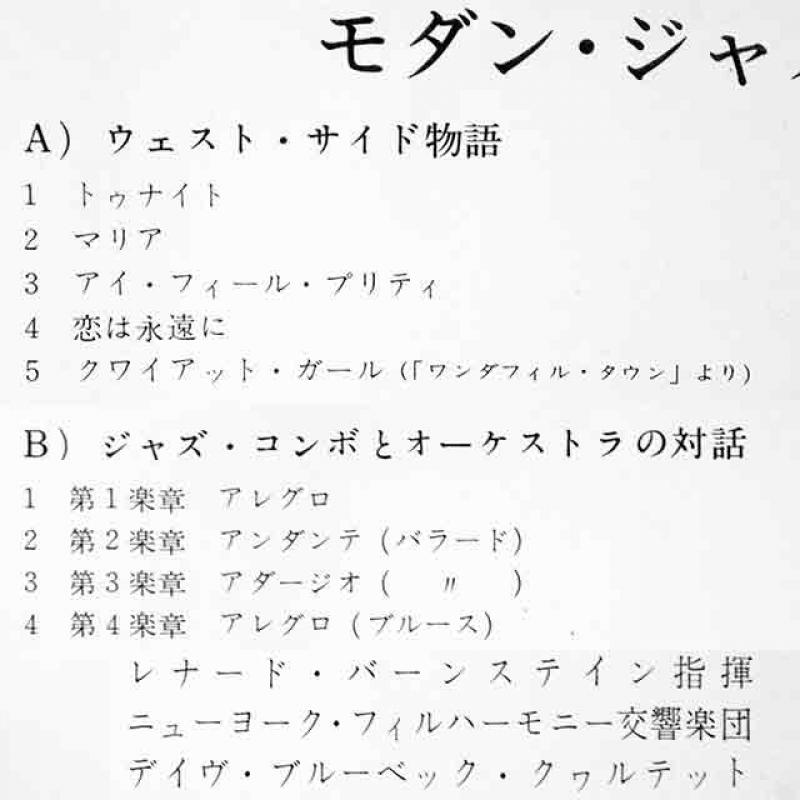 モダン・ジャ
A) ウェスト・サイド物語
1 トゥナイト
2 マリア
3 アイ・フィール・プリティ
4 恋は永遠に
5 クワイアット・ガール (「ワンダフィル・タウン」より)
B) ジャズ・コンボとオーケストラの対話
1 第1楽章 アレグロ
2 第2楽章 アンダンテ (バラード)
3 第3楽章 アダージオ ( 〃 )
4 第4楽章 アレグロ (ブルース)
レナード・バーンステイン指揮
ニューヨーク・フィルハーモニー交響楽団
デイヴ・ブルーベック・クヮルテット